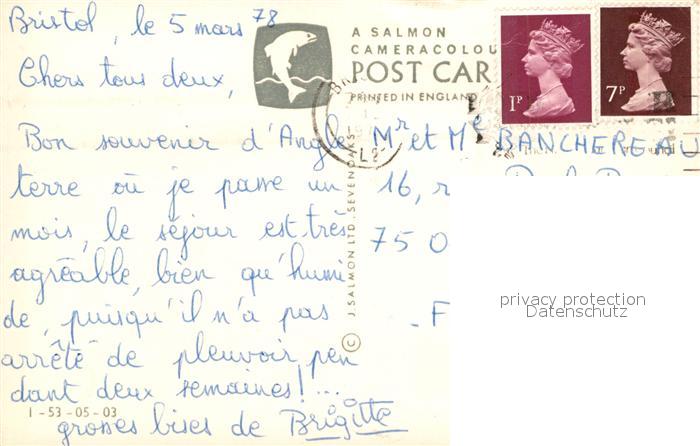 Bristol, le 5 mars 78
Chers tous deux,
Bon souvenir d'Angle
terre où je passe un
mois, le séjour est très
agréable, bien qu'humi
de, puisqu'il n'a pas
arrêté de pleuvoir pen
dant deux semaines!...
grosses bises de Brigitte
1-53-05-03
A SALMON
CAMERACOLOU
POST CAR
PRINTED IN ENGLAND
© J. SALMON LTD., SEVENOAKS
1P
7P
Mr et Me BANCHEREAU
16, r
75 0
- F
privacy protection
Datenschutz